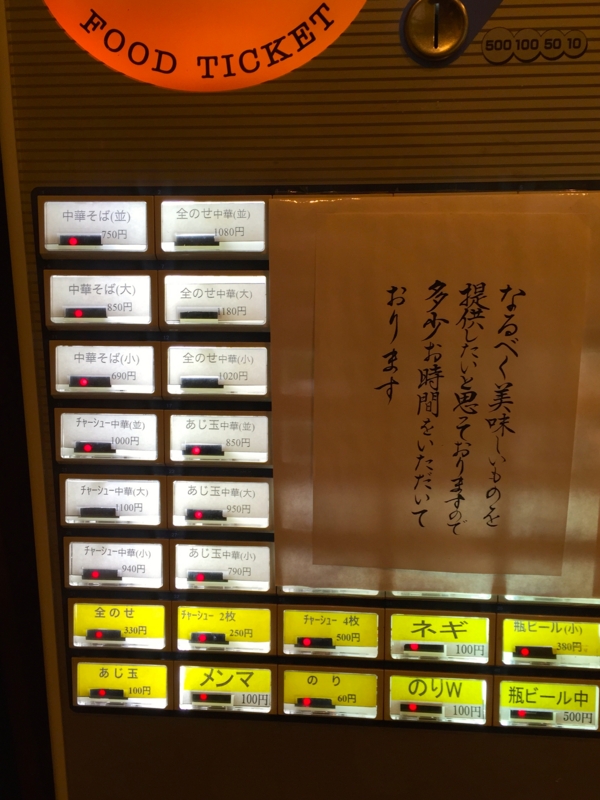 FOOD TICKET
500 100 50 10
中華そば(並)
750円
全のせ中華(並)
1080円
中華そば(大)
850円
全のせ中華(大)
1180円
中華そば(小)
690円
全のせ中華(小)
1020円
チャーシュー中華(並)
1000円
あじ玉中華(並)
850円
チャーシュー中華(大)
1100円
あじ玉中華(大)
950円
チャーシュー中華(小)
940円
あじ玉中華(小)
790円
なるべく美味しいものを
提供したいと思っておりますので
多少お時間をいただいて
おります
全のせ
330円
チャーシュー 2枚
250円
チャーシュー 4枚
500円
ネギ
100円
瓶ビール(小)
380円。
あじ玉
100円
メンマ
100円
のり
60円
のりW
100円
瓶ビール中
500円